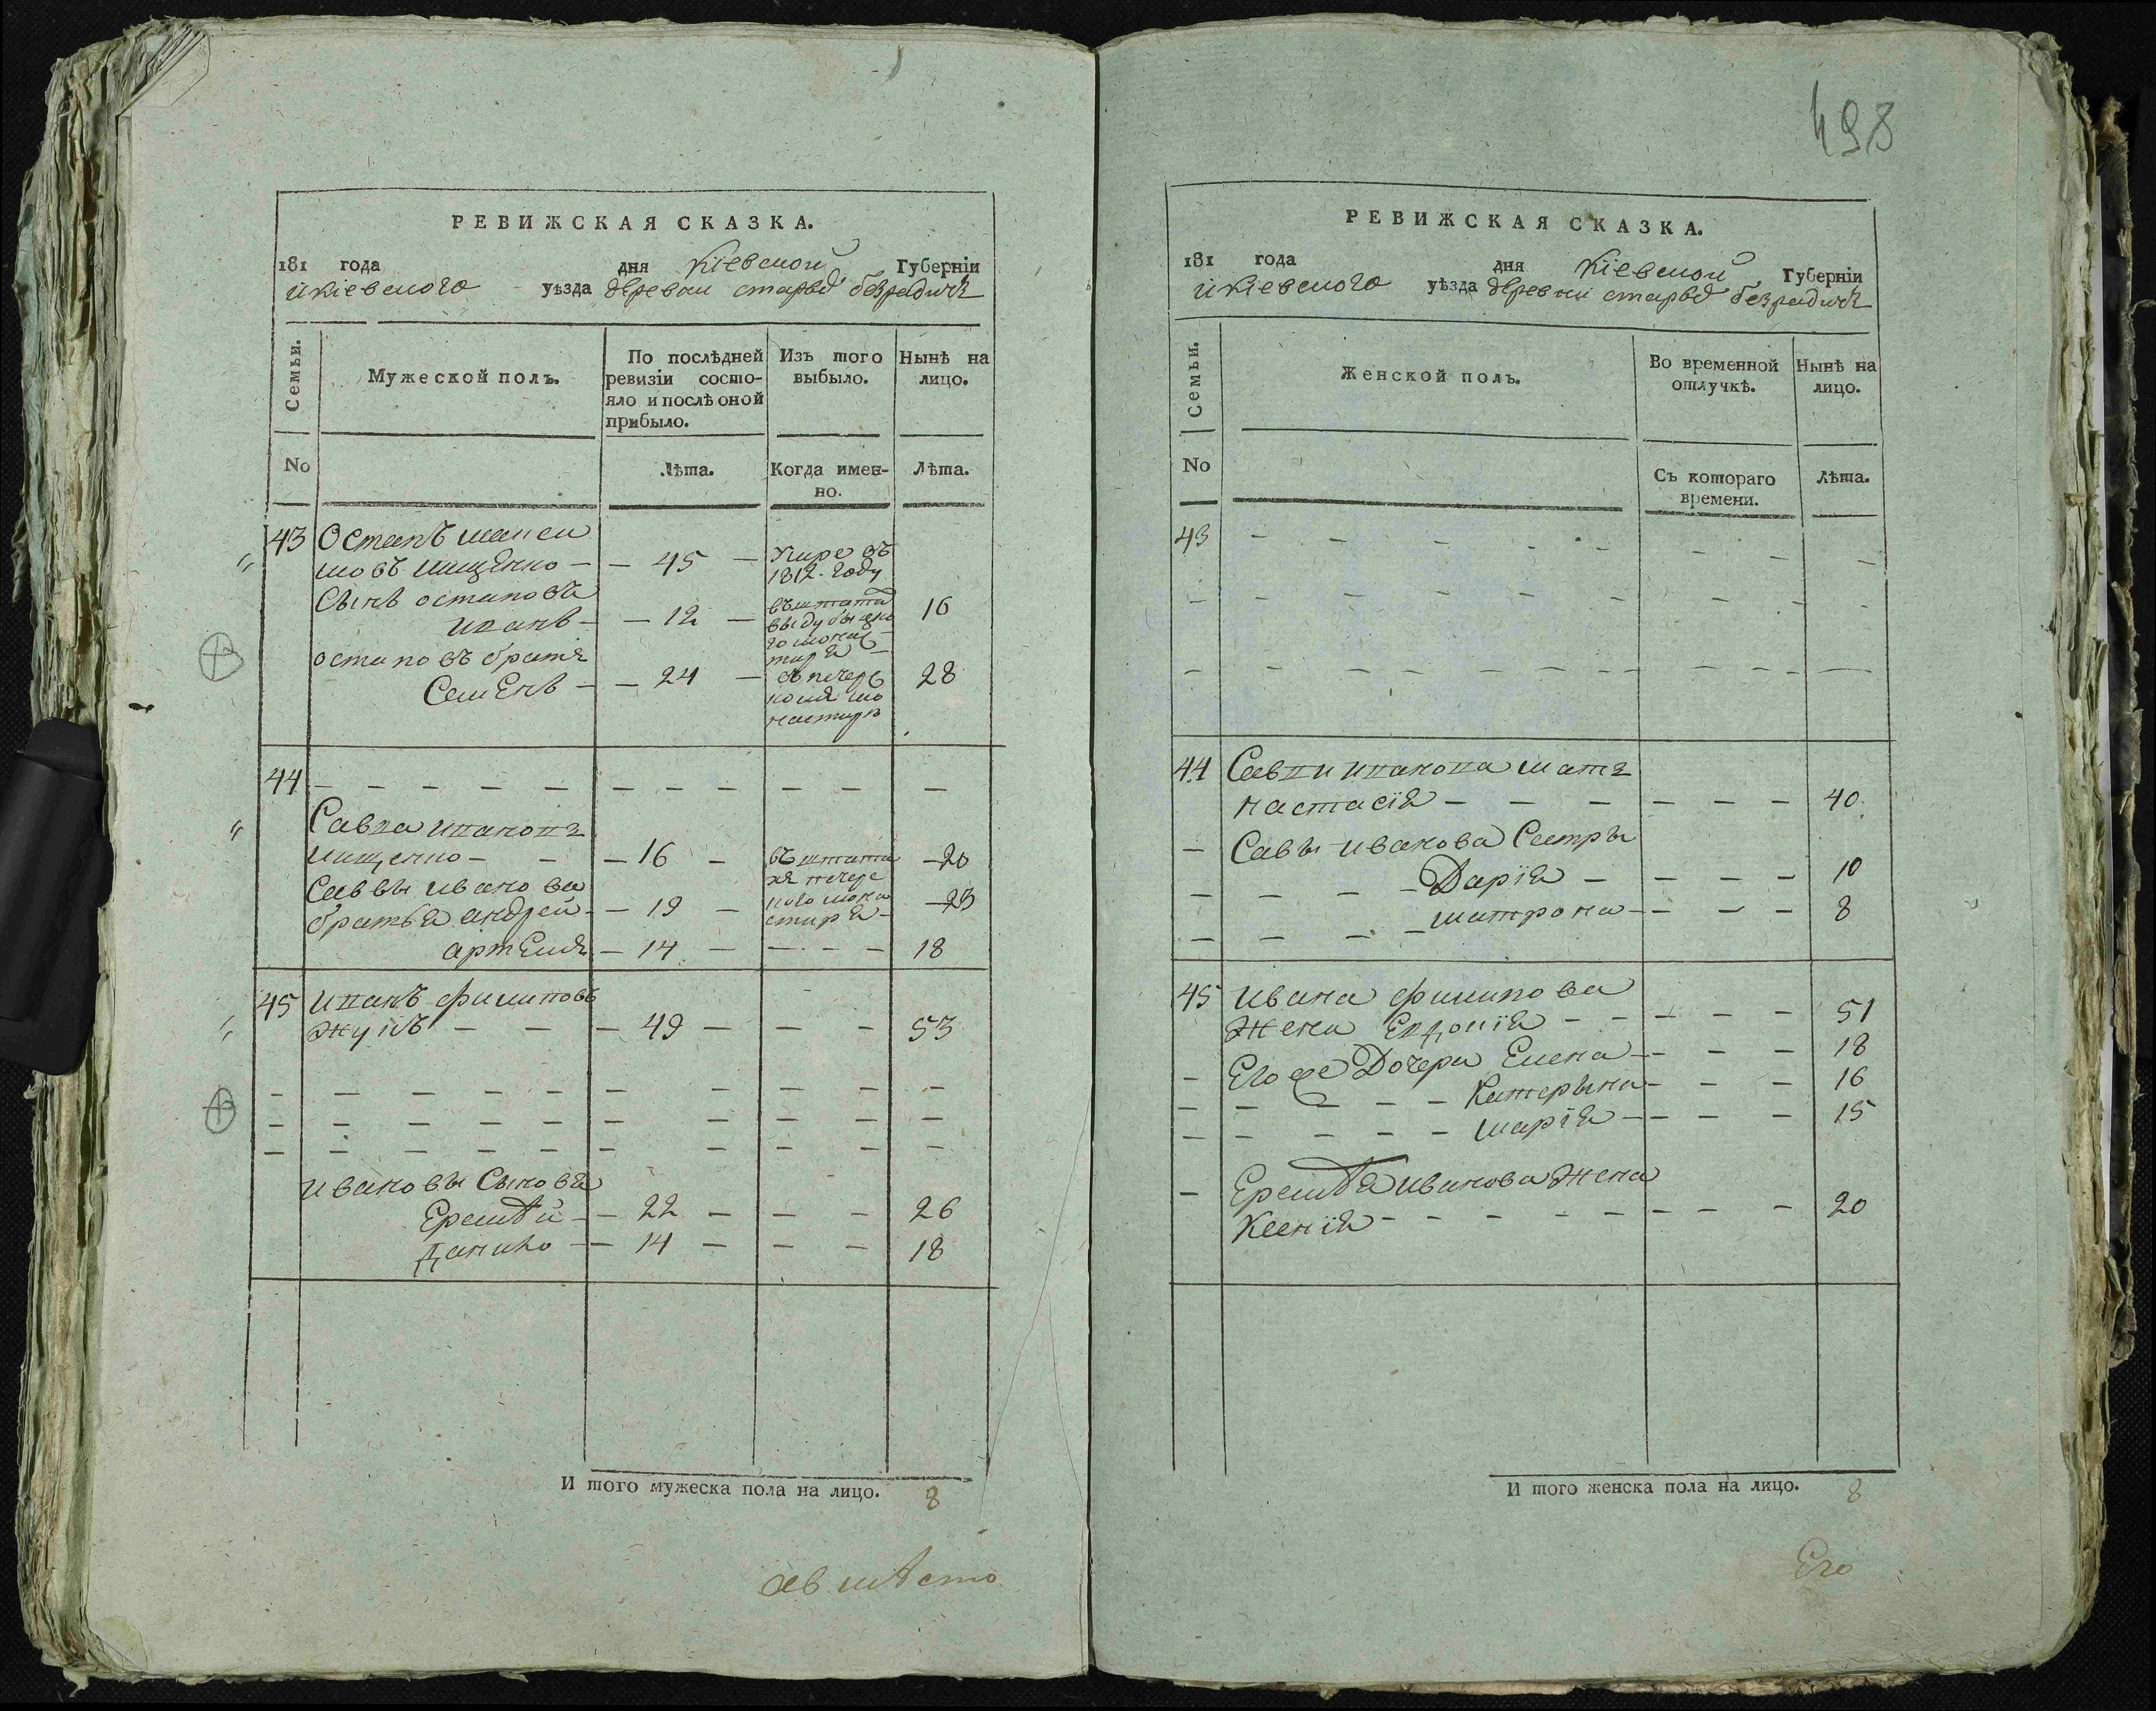 498
РЕВИЖСКАЯ СКАЗКА.
181 года дня Кіевской Губерніи
и кіевского уѣзда деревни старыхъ безрадичъ
Семьи. Мужеской полъ. По послѣдней ревизіи состояло и послѣ оной прибыло. Изъ того выбыло. Нынѣ на лицо.
No Лѣта. Когда именно. Лѣта.
43 Остапъ
мовъ ищенко - - 45 - умре въ
1812. году
Сынъ остапова въ штата
иванъ - - 12 - выдубыцко 16
го мона
остаповъ братъ стиря
Семенъ - - 24 - въ печерс 28
комъ мо
настирѣ
44 - - - - - - - - - - - -
Савва ивановъ
ищенко - - - 16 - въ штатѣ - 20
Саввы иванова
братья андрей - - 19 - мона - 23
стиря -
артемъ - 14 - - - - 18
45 иванъ филиповъ
жукъ - - - 49 - - - 53
ивановы Сыновья
Еремѣй - - 22 - - - 26
данило - - 14 - - - 18
И того мужеска пола на лицо. 8
мѣсто
РЕВИЖСКАЯ СКАЗКА.
181 года дня Кіевской Губерніи
и кіевского уѣзда деревни старыхъ безрадичъ
Семьи. Женской полъ. Во временной отлучкѣ. Нынѣ на лицо.
No Съ котораго времени. Лѣта.
43 - - - - - - - -
44 Саввы иванова мать
настасія - - - - - - 40
- Савы иванова Сестры
- - - - Дарія - - - - 10
- - - - матрона - - - - 8
45 ивана филипова
жена Евдокія - - - - - 51
- Его же Дочери Елена - - - 18
- - - - - Катерына - - - 16
- - - - - марія - - - - 15
- Еремѣя иванова жена
Ксенія - - - - - - - - 20
И того женска пола на лицо. 8
Его